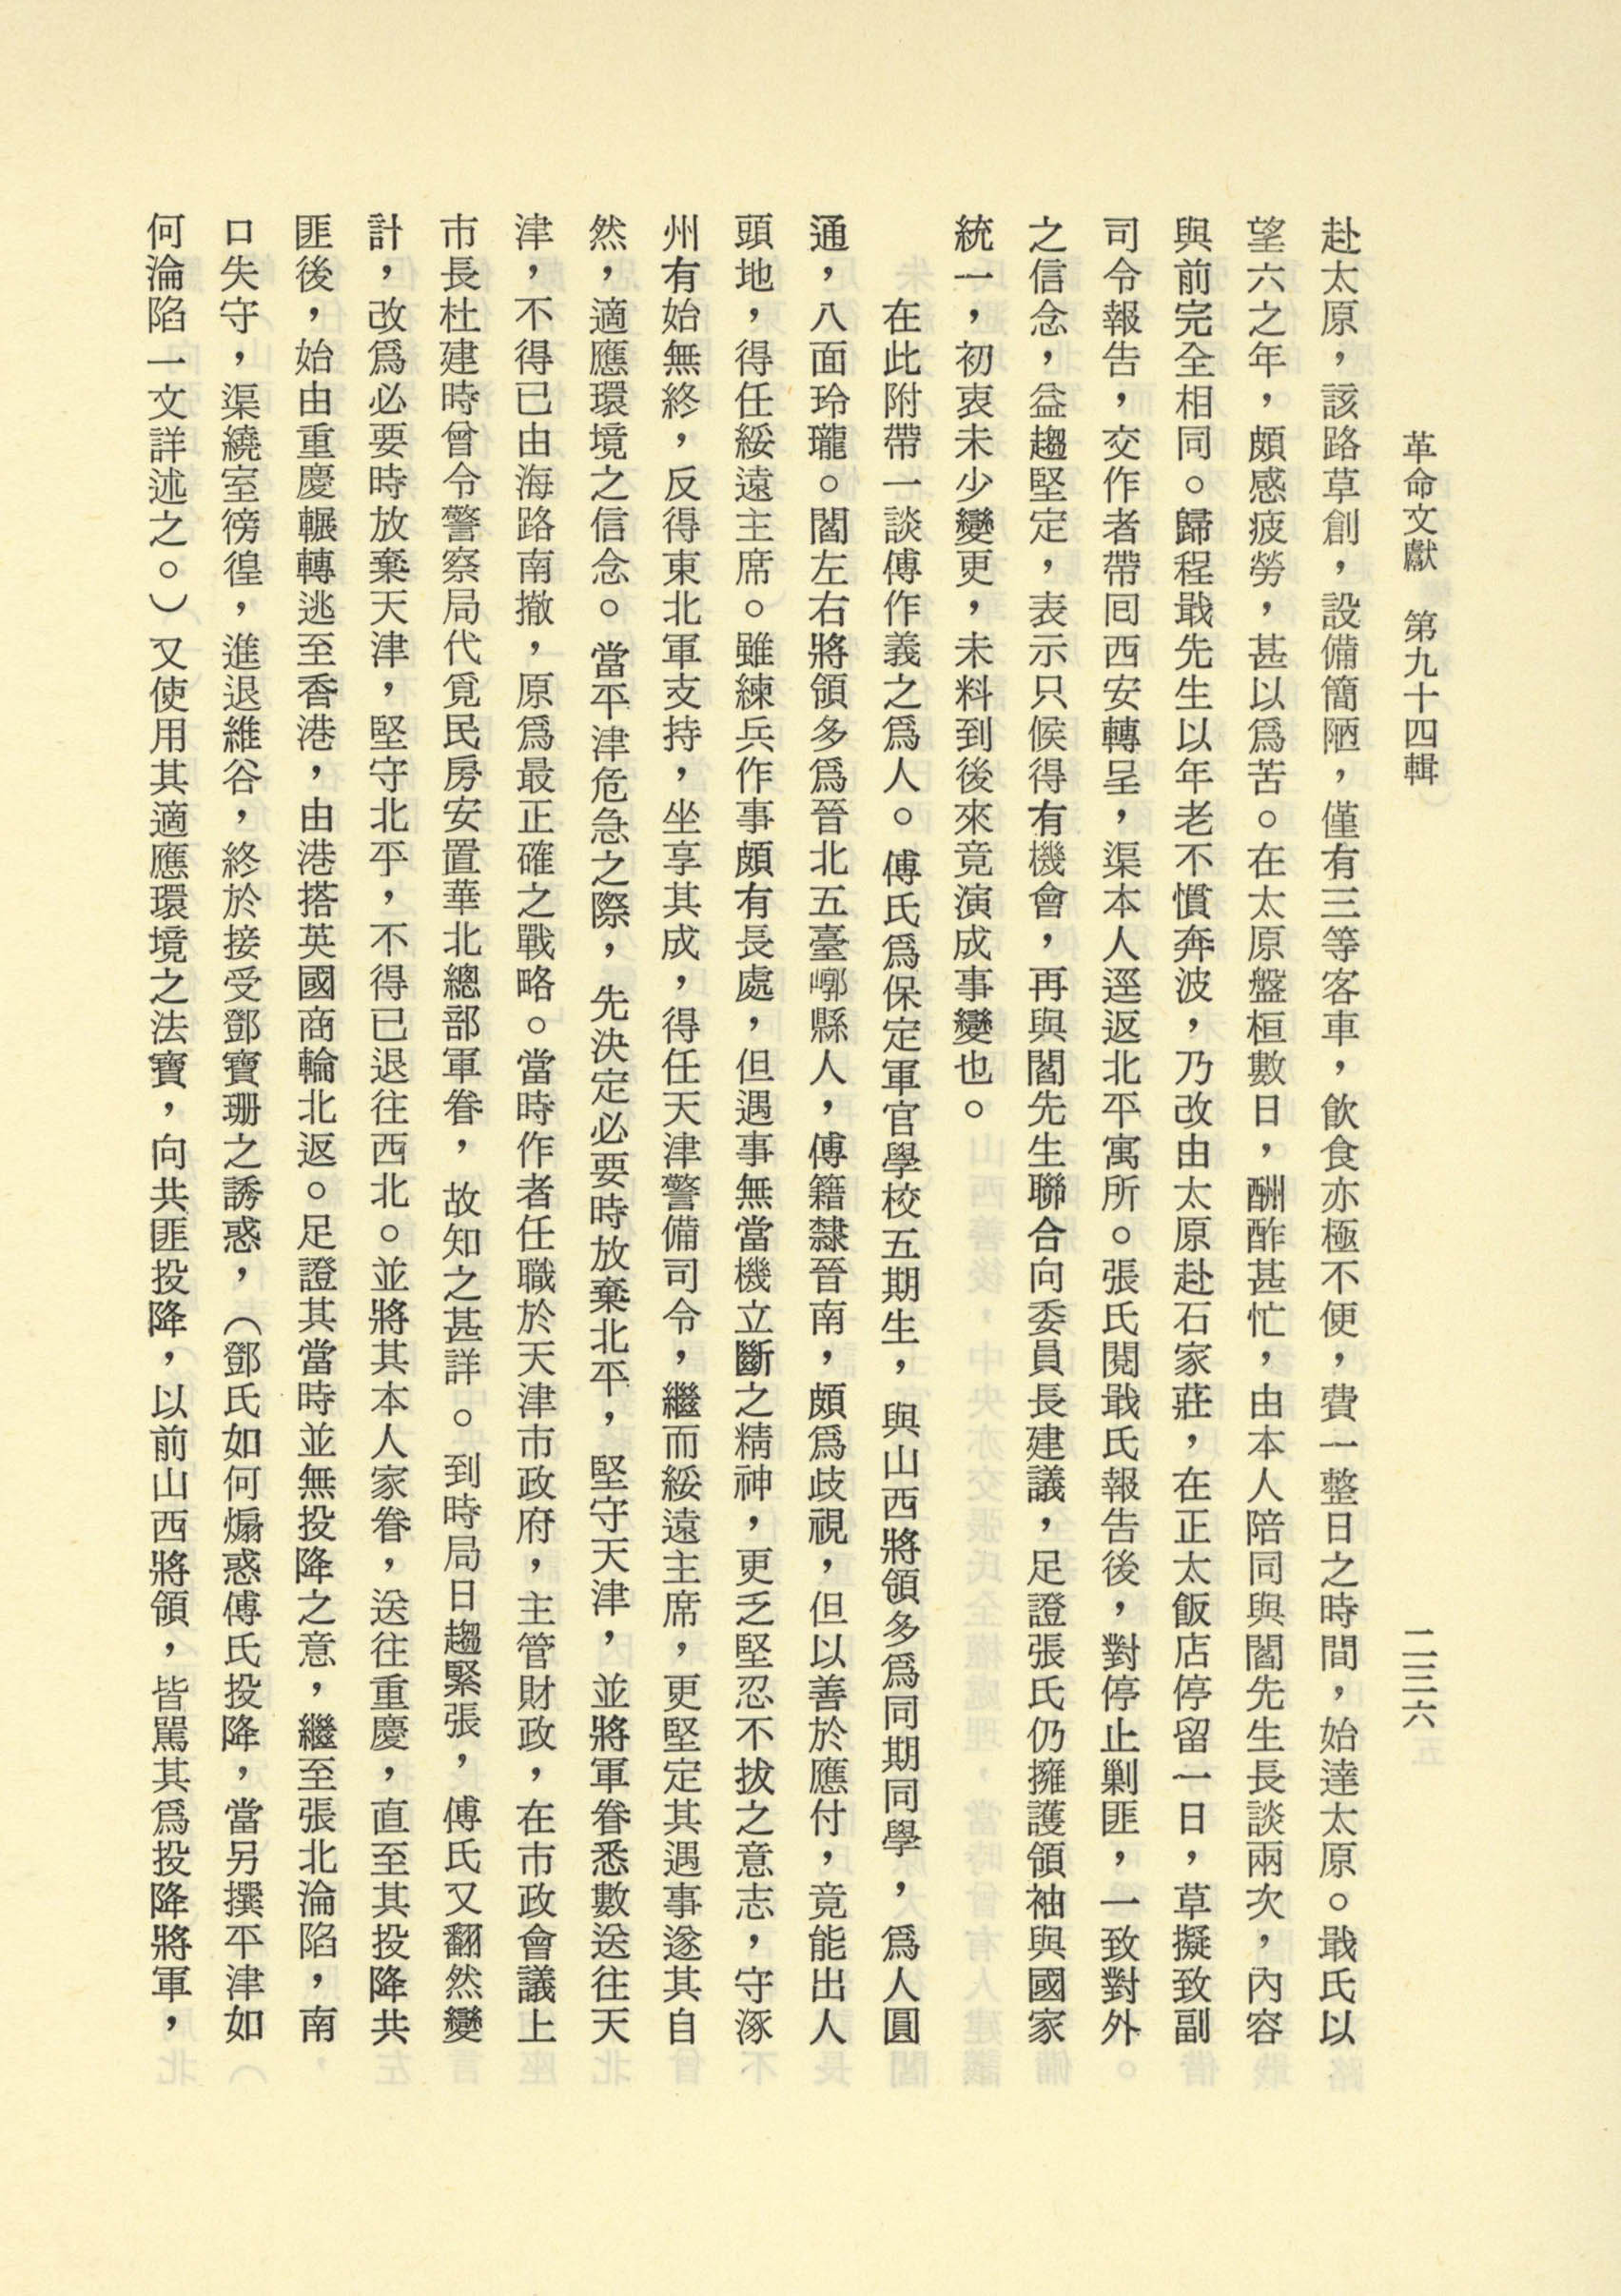 革命文獻　第九十四輯　二三六
赴太原，該路草創，設備簡陋，僅有三等客車，飲食亦極不便，費一整日之時間，始達太原。戢氏以
望六之年，頗感疲勞，甚以爲苦。在太原盤桓數日，酬酢甚忙，由本人陪同與閻先生長談兩次，內容
與前完全相同。歸程戢先生以年老不慣奔波，乃改由太原赴石家莊，在正太飯店停留一日，草擬致副
司令報告，交作者帶囘西安轉呈，渠本人逕返北平寓所。張氏閱戢氏報告後，對停止剿匪，一致對外
之信念，益趨堅定，表示只候得有機會，再與閻先生聯合向委員長建議，足證張氏仍擁護領袖與國家
統一，初衷未少變更，未料到後來竟演成事變也。
在此附帶一談傅作義之爲人。傅氏爲保定軍官學校五期生，與山西將領多爲同期同學，爲人圓
通，八面玲瓏。閻左右將領多爲晉北五臺嶂縣人，傅籍隸晉南，頗爲歧視，但以善於應付，竟能出人
頭地，得任綏遠主席。雖練兵作事頗有長處，但遇事無當機立斷之精神，更乏堅忍不拔之意志，守涿
州有始無終，反得東北軍支持，坐享其成，得任天津警備司令，繼而綏遠主席，更堅定其遇事遂其自
然，適應環境之信念。當平津危急之際，先決定必要時放棄北平，堅守天津，並將軍眷悉數送往天
津，不得已由海路南撤，原爲最正確之戰略。當時作者任職於天津市政府，主管財政，在市政會議上
市長杜建時曾令警察局代覓民房安置華北總部軍眷，故知之甚詳。到時局日趨緊張，傅氏又翻然變
計，改爲必要時放棄天津，堅守北平，不得已退往西北。並將其本人家眷，送往重慶，直至其投降共
匪後，始由重慶輾轉逃至香港，由港搭英國商輪北返。足證其當時並無投降之意，繼至張北淪陷，南
口失守，渠繞室徬徨，進退維谷，終於接受鄧寶珊之誘惑，（鄧氏如何煽惑傅氏投降，當另撰平津如
何淪陷一文詳述之。）又使用其適應環境之法寶，向共匪投降，以前山西將領，皆駡其爲投降將軍，